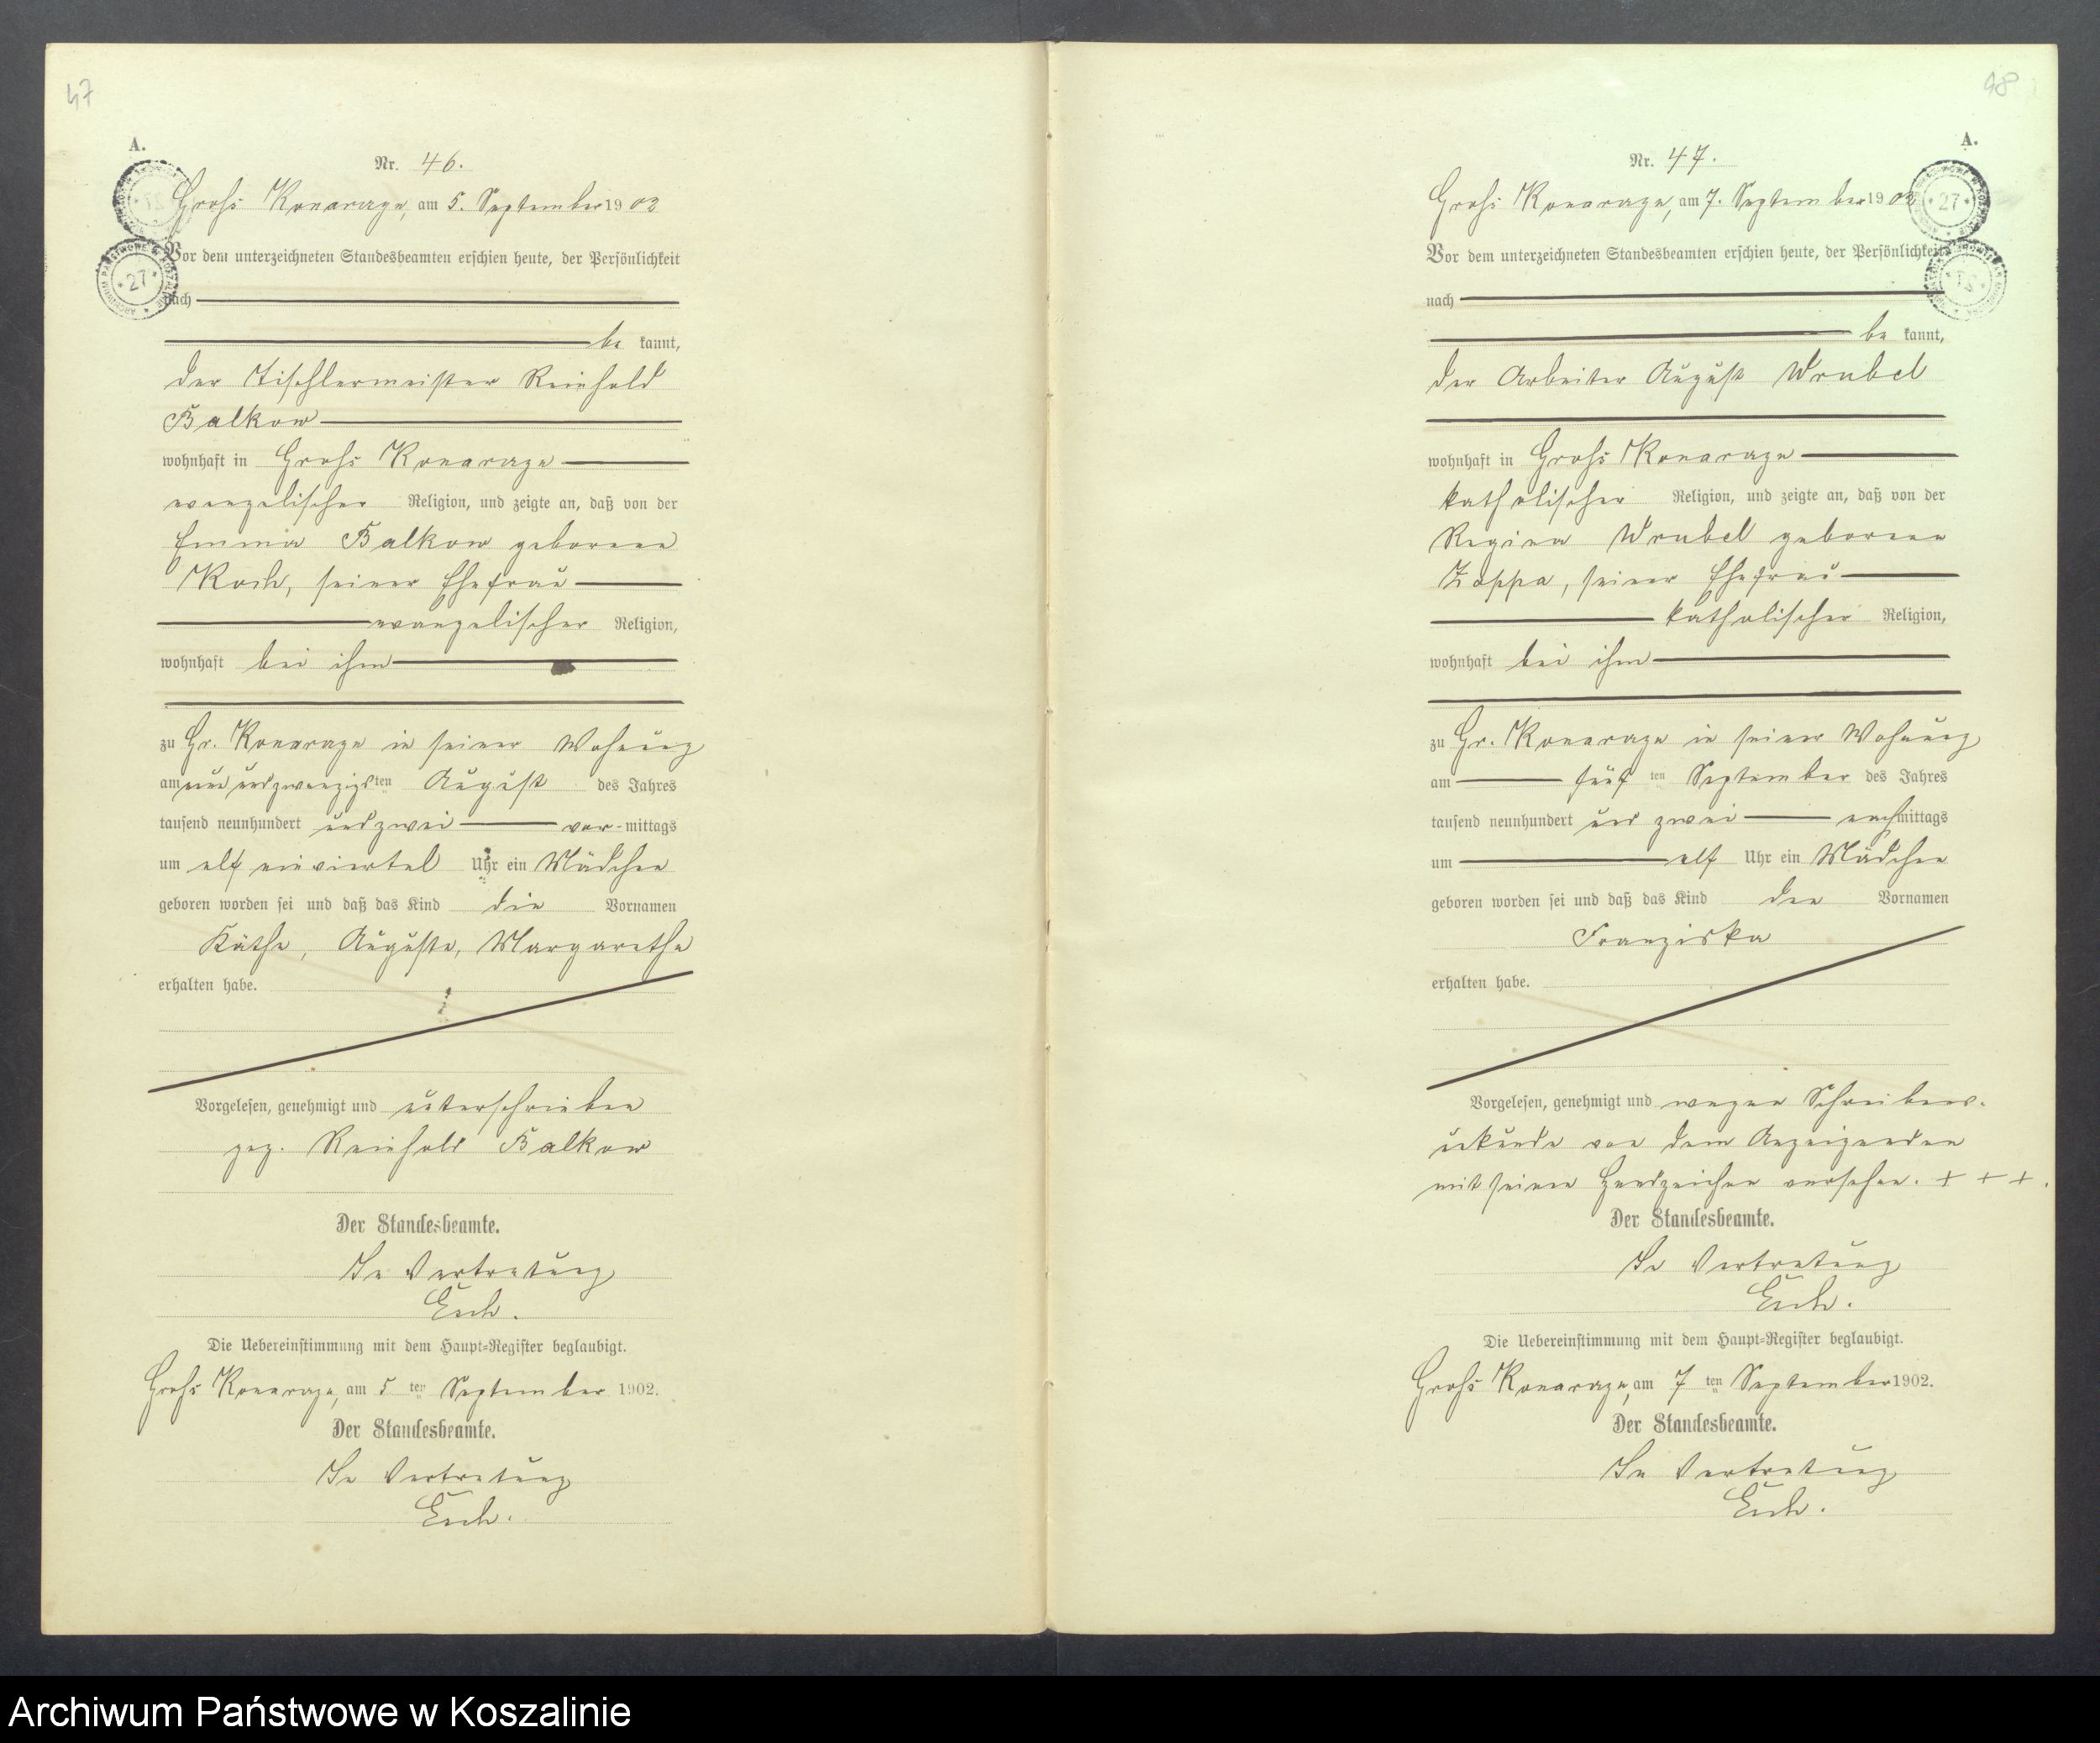 47
A.
Nr. 46.
Groß Konarzyn, am 5. September 1902
Vor dem unterzeichneten Standesbeamten erschien heute, der Persönlichkeit
nach
be kannt,
der Tischlermeister Reinhold
Balkow
wohnhaft in Groß Konarzyn
evangelischer Religion, und zeigte an, daß von der
Emma Balkow geborenen
Koch, seiner Ehefrau
evangelischer Religion,
wohnhaft bei ihm
zu Gr. Konarzyn in seiner Wohnung
am neunundzwanzigsten August des Jahres
tausend neunhundert und zwei vor-mittags
um elf einviertel Uhr ein Mädchen
geboren worden sei und daß das Kind die Vornamen
Käthe, Auguste, Margarethe
erhalten habe.
Vorgelesen, genehmigt und unterschrieben
gez. Reinhold Balkow
Der Standesbeamte.
In Vertretung
Esch.
Die Uebereinstimmung mit dem Haupt-Register beglaubigt.
Groß Konarzyn, am 5 ten September 1902.
Der Standesbeamte.
In Vertretung
Esch.
48
A.
Nr. 47.
Groß Konarzyn, am 7. September 1902
27
Vor dem unterzeichneten Standesbeamten erschien heute, der Persönlichkeit
nach
be kannt,
der Arbeiter August Wrubel
wohnhaft in Groß Konarzyn
katholischer Religion, und zeigte an, daß von der
Regina Wrubel geborenen
Zoppa, seiner Ehefrau
katholischer Religion,
wohnhaft bei ihm
zu Gr. Konarzyn in seiner Wohnung
am fünf ten September des Jahres
tausend neunhundert und zwei nachmittags
um elf Uhr ein Mädchen
geboren worden sei und daß das Kind den Vornamen
Franziska
erhalten habe.
Vorgelesen, genehmigt und wegen Schreibens-
unkunde von dem Anzeigenden
mit seinem Handzeichen versehen. + + +.
Der Standesbeamte.
In Vertretung
Esch.
Die Uebereinstimmung mit dem Haupt-Register beglaubigt.
Groß Konarzyn, am 7 ten September 1902.
Der Standesbeamte.
In Vertretung
Esch.
Archiwum Państwowe w Koszalinie